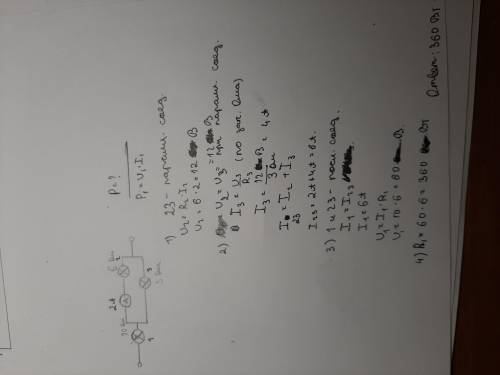 P=?
P₁=U₁·I₁
2A
10 Ом
6 Ом
2
3
3 Ом
1
1) 23 - паралл. соед.
U₂ = R₂·I₂
U₂ = 6·2 = 12 В
2) U₂ = U₃ = 12 В при паралл. соед.
I₃ = U₃/R₃ (по зак. Ома)
I₃ = 12 В/3 Ом = 4A
I₂₃ = I₂ + I₃
I₂₃ = 2A+4A = 6A.
3) 1 и 23 - посл. соед.
I₁ = I₂,₃
I₁ = 6A
U₁ = I₁·R₁
U₁ = 10·6 = 60 В.
4) P₁ = 60·6 = 360 Вт
Ответ: 360 Вт.